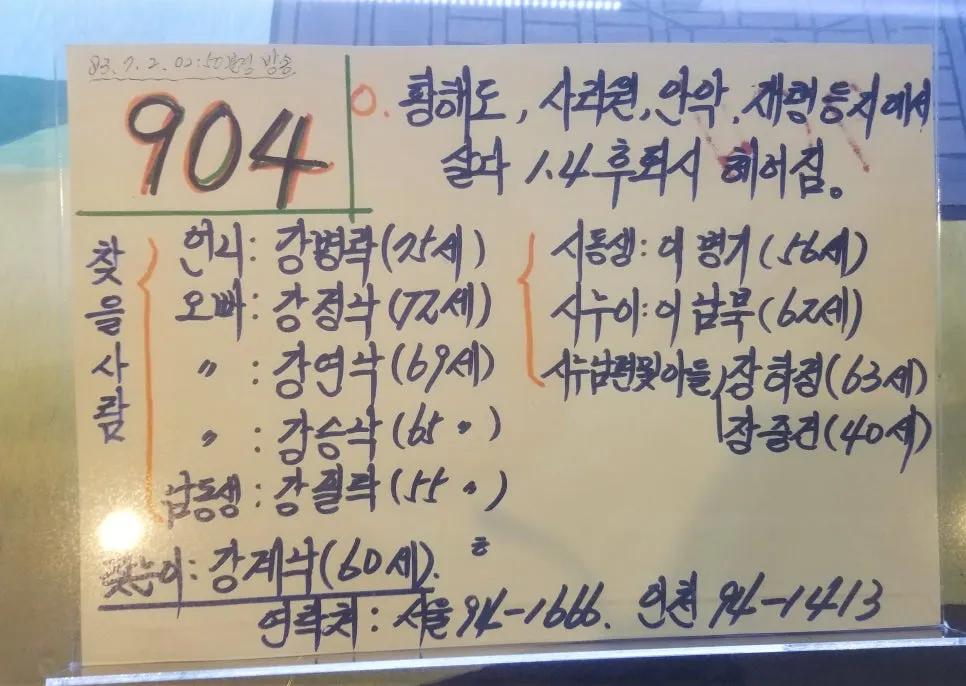 83. 7. 2. 02:50 방송
904
○. 황해도, 사리원, 안악, 재령등지에서
살다 1.4후퇴시 헤어짐。
찾을사람
언니: 강병락(75세)
오빠: 강정삭(72세)
〃 : 강연삭(69세)
〃 : 강승삭(65〃)
남동생: 강필락(55〃)
시동생: 이병기(56세)
시누이: 이남북(62세)
시누남편및아들, 장하정(63세)
장중건(40세)
찾는이: 강계삭(60세).
연락처: 서울94-1666. 인천94-1413